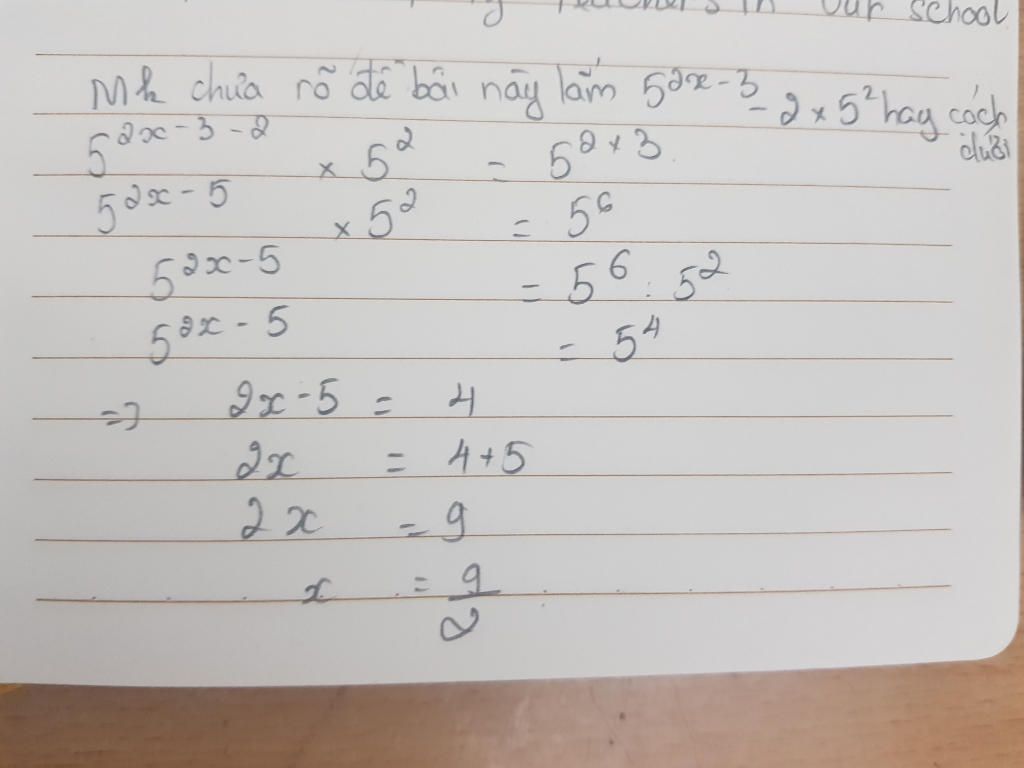 Teachers in our school
Mk chưa rõ đề bài này lắm 5^{2x-3} - 2 × 5^2 hay cách dưới
5^{2x-3-2} × 5^2 = 5^{2×3}
5^{2x-5} × 5^2 = 5^6
5^{2x-5} = 5^6 : 5^2
5^{2x-5} = 5^4
=> 2x-5 = 4
2x = 4+5
2x = 9
x = \frac{9}{2}